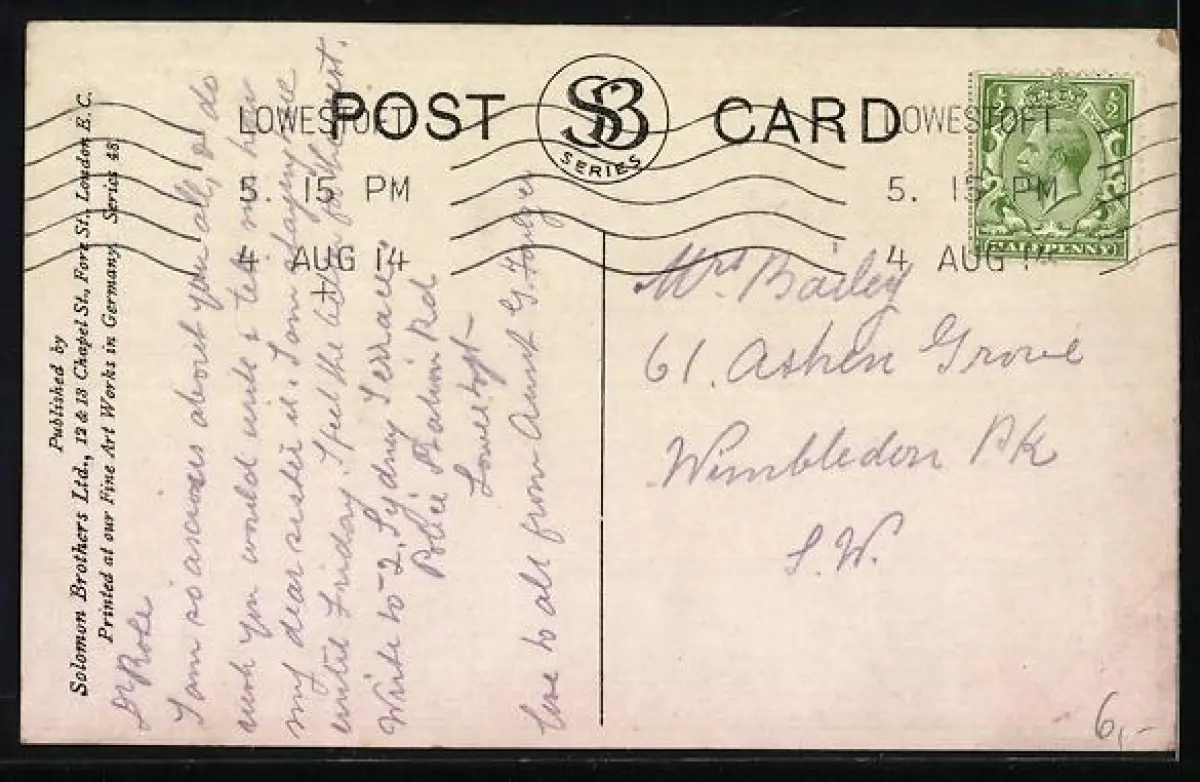 POST CARD
SB
SERIES
LOWESTOFT
5. 15 PM
4 AUG 14
LOWESTOFT
5. 15 PM
4 AUG 14
½ ½
HALFPENNY
Published by
Solomon Brothers Ltd., 12 & 13 Chapel St., Fore St. London E.C.
Printed at our Fine Art Works in Germany. Series 48
Dr Rose
I am so anxious about you all, do
wish you would write & tell me how
my dear sister is. I am
until Friday. I feel the
Write to - 2, Sydney Terrace
Police Station Rd
Lowestoft -
love to all from Aunt G.
Mrs Bailey
61. Ashen Grove
Wimbledon Pk
S.W.
6,-